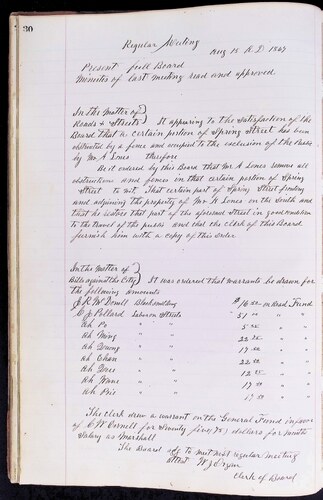 30
Regular Meeting
Aug 15 A.D. 1867
Present full Board
Minutes of last meeting read and approved
In the Matter of
Roads & Streets } It appearing to the satisfaction of the
Board that a certain portion of Spring Street has been
obstructed by a fence and occupied to the exclusion of the Public
by Mr A Jones therefore
Be it ordered by this Board that Mr A Jones remove all
obstructions and fences in that certain portion of Spring
Street to wit. That certain part of Spring Street fronting
and adjoining the property of Mr A Jones on the South and
that he restores that part of the aforesaid Street in good condition
to the travel of the public and that the clerk of this Board
furnish him with a copy of this order
In the Matter of
Bills against the City } It was ordered that warrants be drawn for
the following amounts
J. R. McDonell Blacksmithing $16 on Road Fund
C. J. Pollard Labor on Streets 51 00 "
Ah Po " " 5 "
Ah Ming " " 22 "
Ah Young " " 17 "
Ah Chan " " 22 "
Ah " " 12 "
Ah " " 17 "
Ah " " 17 "
The Clerk drew a warrant on the General Fund in favor
of C W Cornell for Seventy five (75) dollars for months
Salary as Marshall
The Board adj to meet next regular meeting
attest W J
Clerk of Board